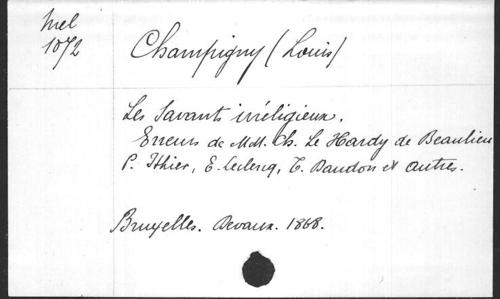 Mel
1072
Champigny (Louis)
Les Savants irréligieux.
Erreurs de MM. Ch. Le Hardy de Beaulieu
P. Ithier, E. Leclercq, T. Daudon et autres.
Bruxelles. Devaux. 1868.